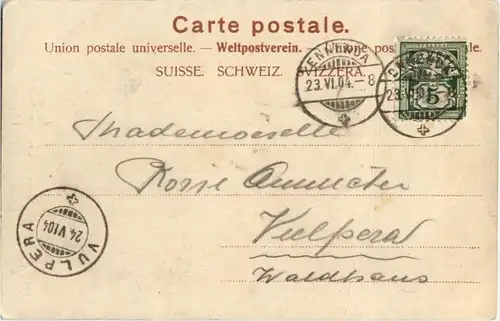 Carte postale.
Union postale universelle. — Weltpostverein. — Unione postale
SUISSE. SCHWEIZ. SVIZZERA.
23.VI.04.–8
5
Mademoiselle
Vulpera
Waldhaus
24.VI 04
VULPERA